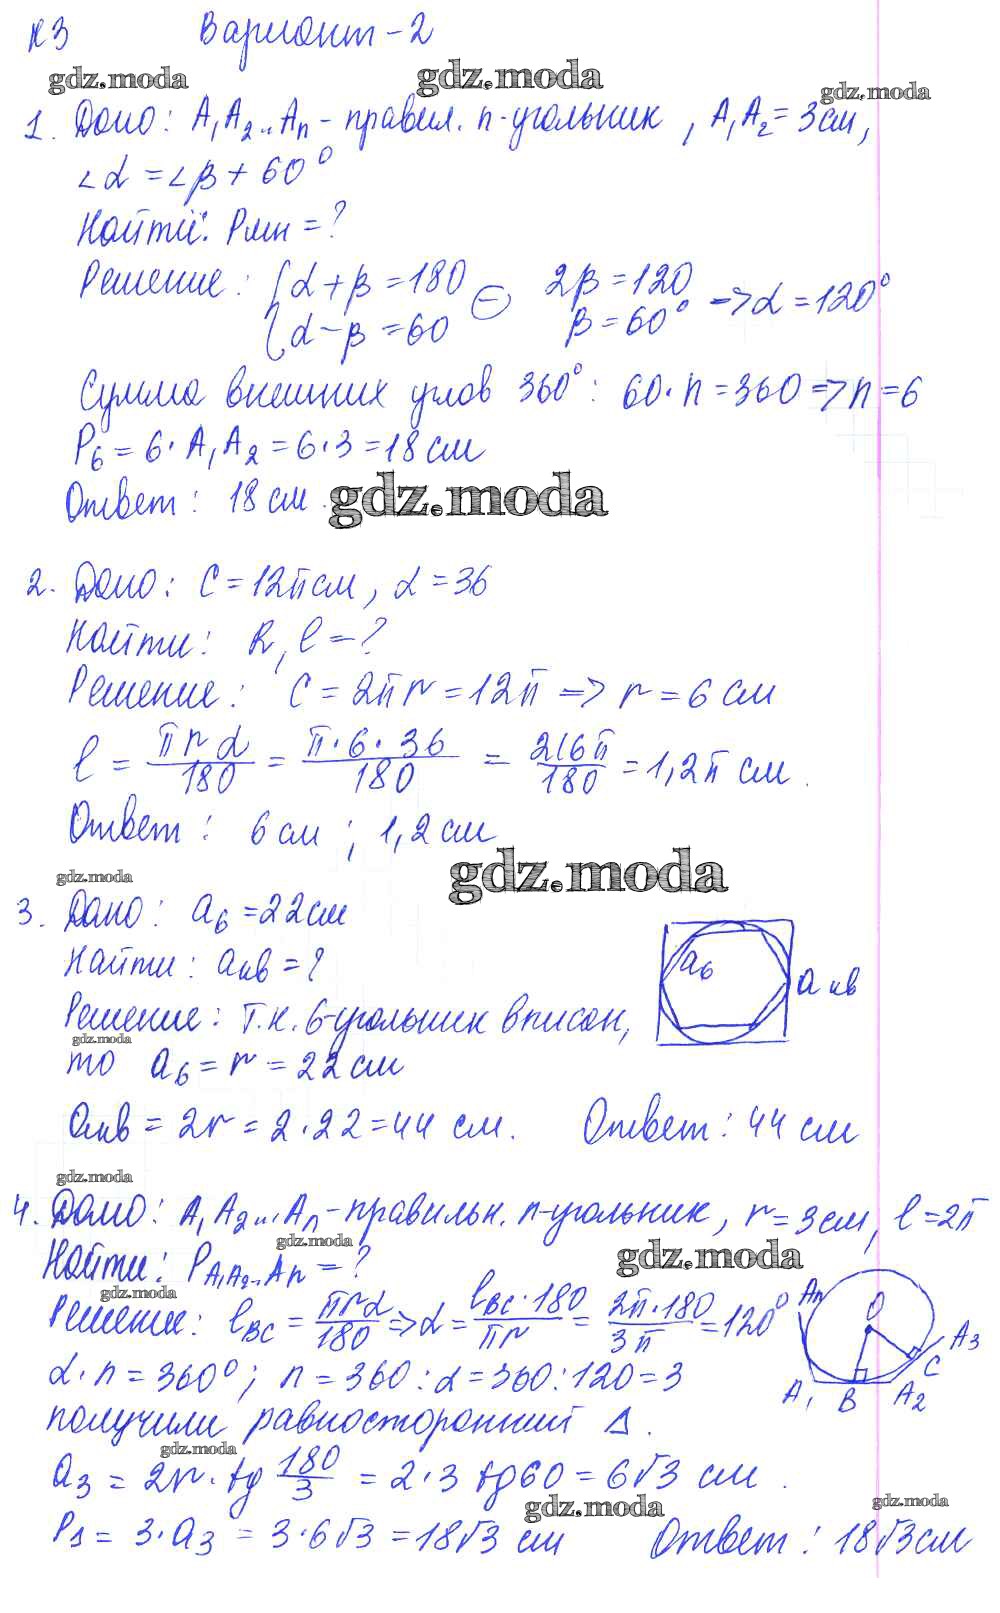 К3 Вариант-2
gdz.moda gdz.moda gdz.moda
1. Дано: A₁A₂...Aₙ - правил. n-угольник, A₁A₂=3см,
∠α=∠β+60°
Найти: Pмн=?
Решение: {α+β=180 ⊖ 2β=120
{α-β=60 β=60° => α=120°
Сумма внешних углов 360°: 60·n=360=>n=6
P₆=6·A₁A₂=6·3=18см
Ответ: 18см. gdz.moda
2. Дано: C=12πсм, α=36
Найти: R, l-?
Решение: C=2πr=12π => r=6см
l = πrα/180 = π·6·36/180 = 216π/180 = 1,2π см.
Ответ: 6см; 1,2см
gdz.moda gdz.moda
3. Дано: a₆=22см
Найти: aкв=?
Решение: т.к. 6-угольник вписан,
gdz.moda
то a₆=r=22см
a₆
aкв
aкв=2r=2·22=44см. Ответ: 44см
gdz.moda
4. Дано: A₁A₂...Aₙ-правильн. n-угольник, r=3см, l=2π
gdz.moda gdz.moda
Найти: P A₁A₂...Aₙ=?
gdz.moda
Решение: lBC = πrα/180 => α = lBC·180/πr = 2π·180/3π = 120°
α·n=360°; n=360:α=360:120=3
получили равносторонний Δ.
Aₙ O A₃ C A₁ B A₂
gdz.moda
a₃=2r·tg 180/3 = 2·3tg60=6√3 см.
gdz.moda gdz.moda
P₃=3·a₃=3·6√3=18√3 см Ответ: 18√3см